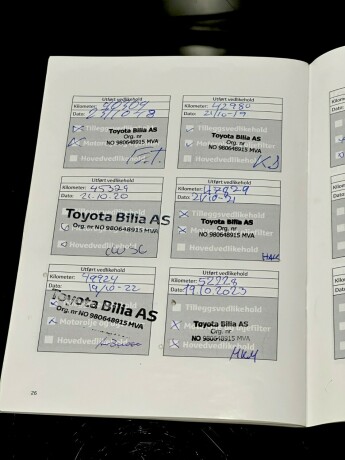 Utført vedlikehold
Kilometer:
Dato: 23/10-18
Tilleggsvedlikehold
Toyota Bilia AS
Org. nr
NO 980648915 MVA
Hovedvedlikehold
Utført vedlikehold
Kilometer: 42980
Dato: 21/10-19
Tilleggsvedlikehold
Toyota Bilia AS
Org. nr
NO 980648915 MVA
Hovedvedlikehold
Utført vedlikehold
Kilometer: 45329
Dato: 21.10.20
Toyota Bilia AS
Org. nr NO 980648915 MVA
Utført vedlikehold
Kilometer: 47929
Dato: 21/10-21
Tilleggsvedlikehold
Toyota Bilia AS
Org. nr
NO 980648915 MVA
Hovedvedlikehold
Utført vedlikehold
Kilometer: 49924
Dato: 19/10-22
Toyota Bilia AS
Org. nr NO 980648915 MVA
Hovedvedlikehold
Utført vedlikehold
Kilometer:
Dato: 19.10.2023
Toyota Bilia AS
Org. nr
NO 980648915 MVA
Hovedvedlikehold
MKM
26